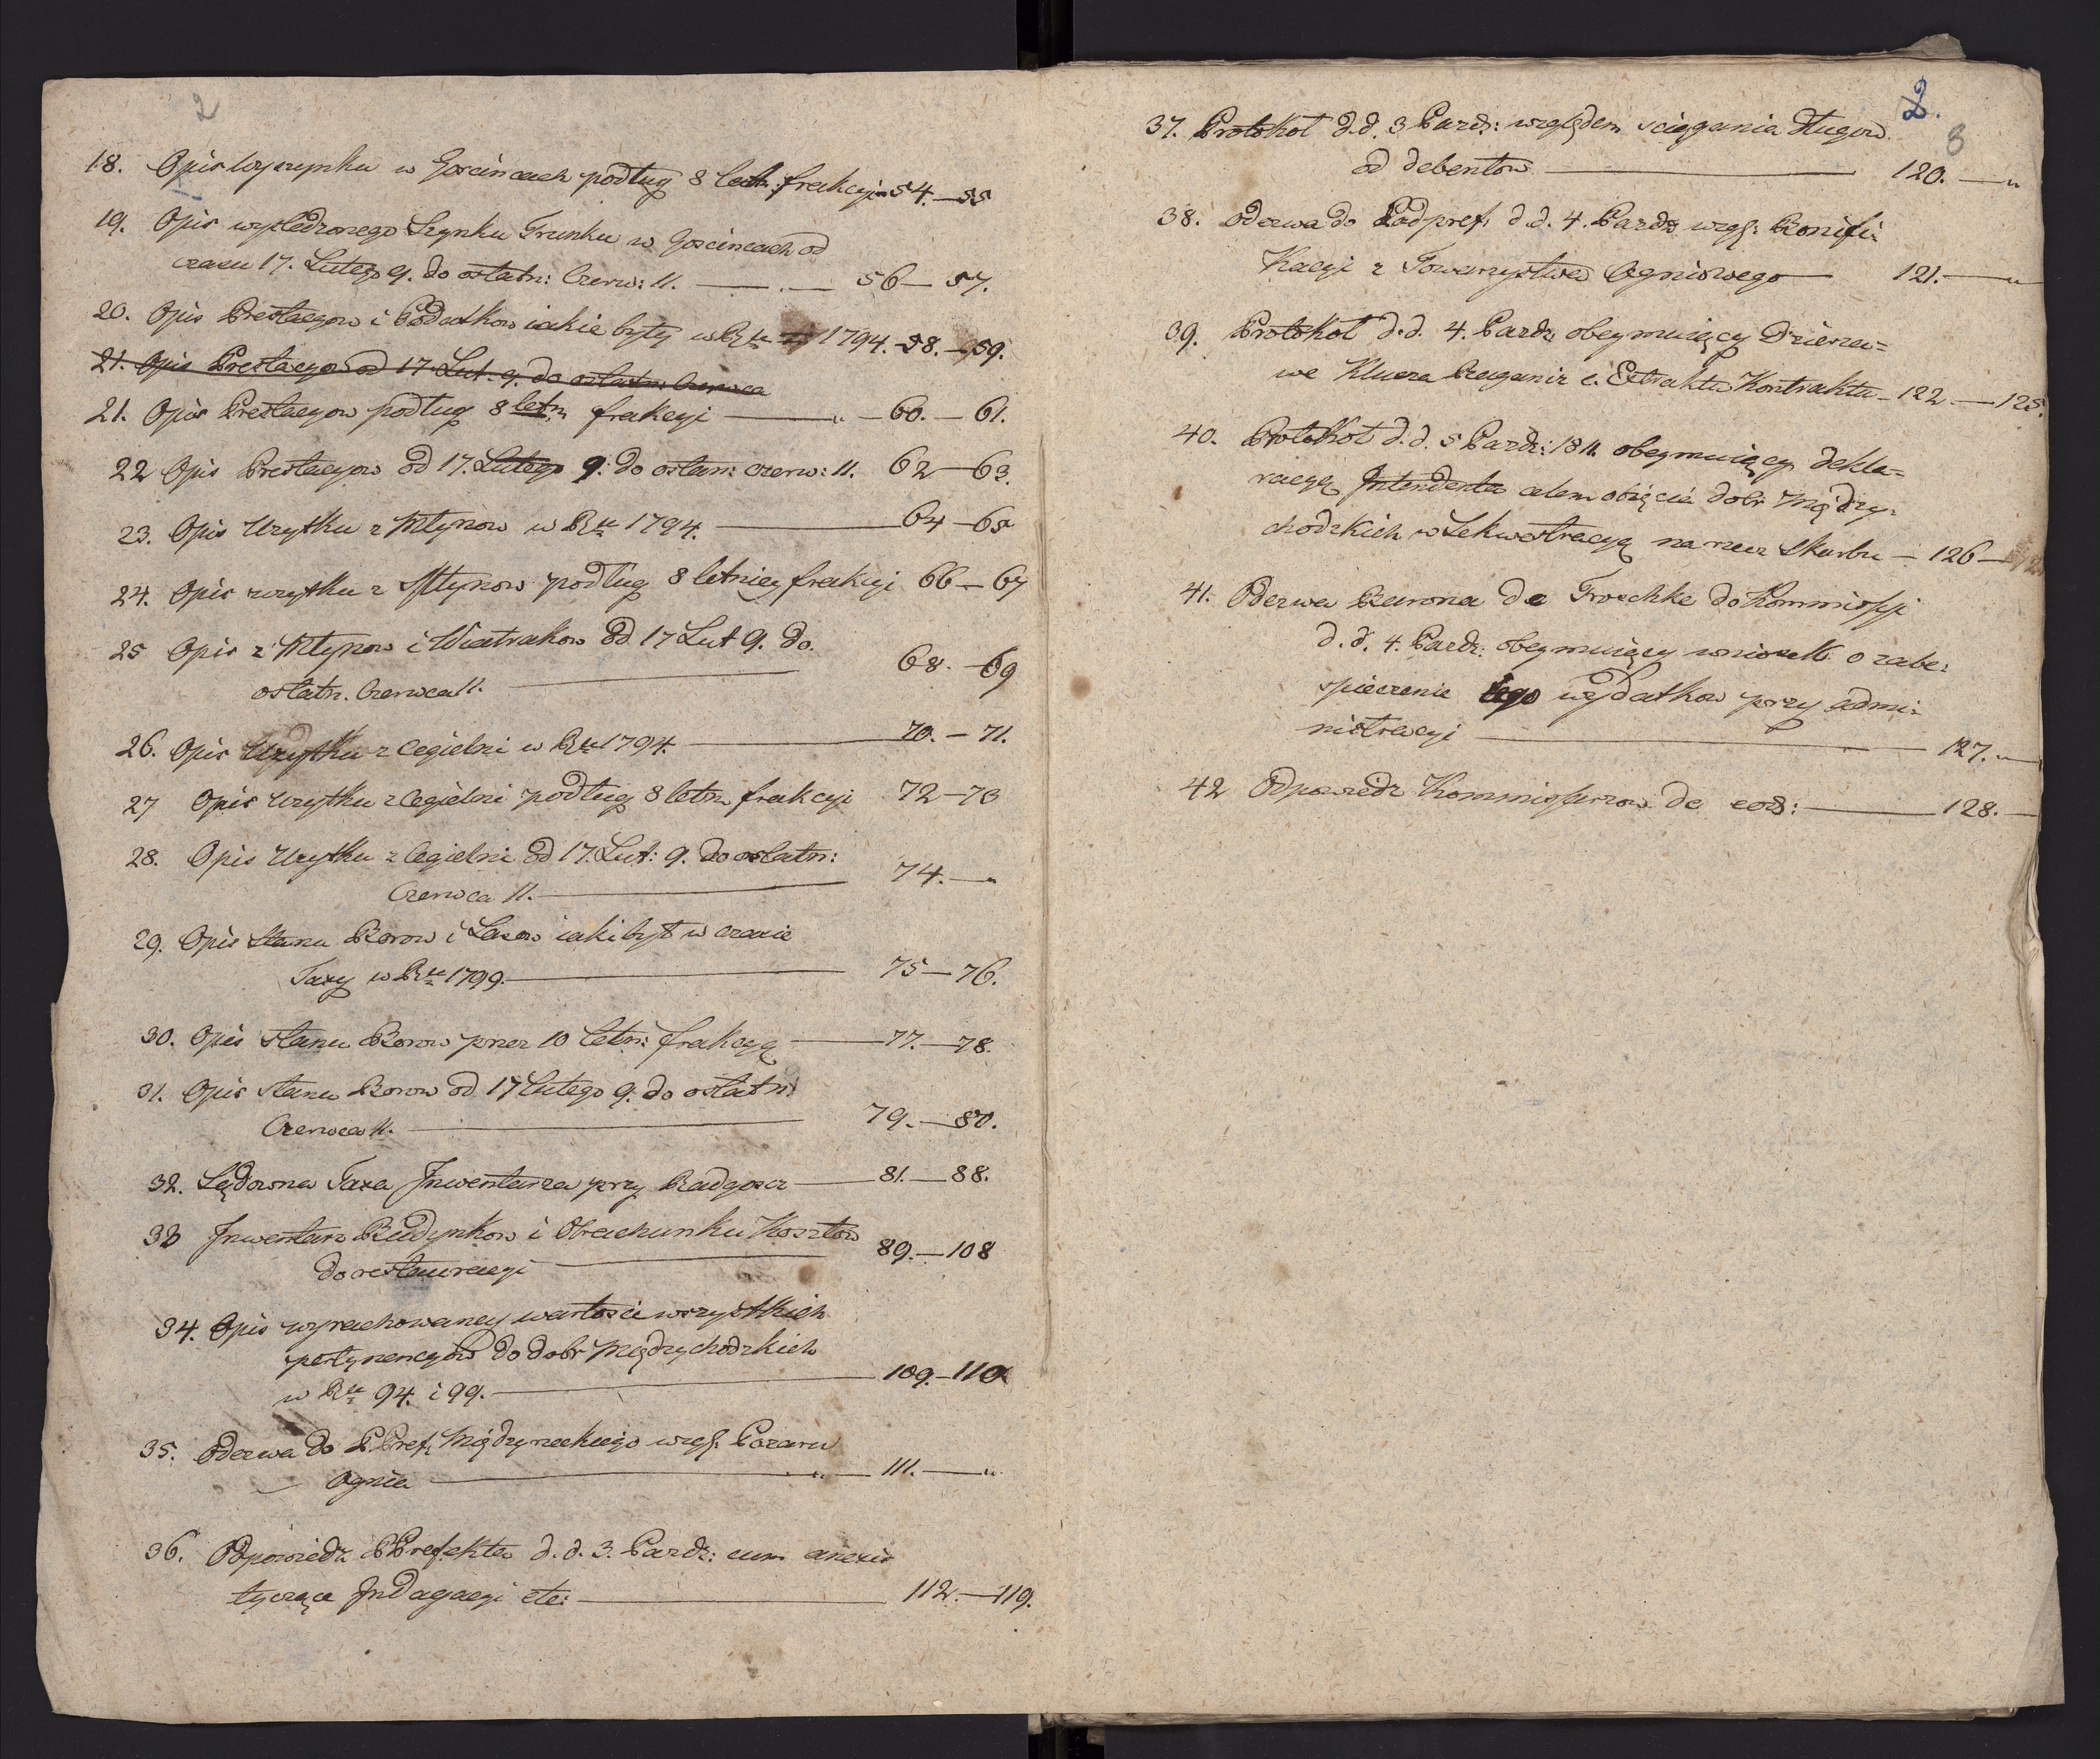 2
18. Opis Wyszynku w Goscincach podług 8 letn: frakcyi 54.—55
19. Opis wysledzonego Szynku Trunku w Goscincach od
czasu 17. Lutego 9. do ostatn: Czerw: 11. — 56—57.
20. Opis Prestacyow i Podatkow iakie były w Rku 1794. 58.—59.
21. Opis Prestacyow od 17 Lut. 9. do ostatn: Czerwca
21. Opis Prestacyow podług 8 letn frakcyi — 60.—61.
22 Opis Prestacyow od 17. Lutego 9. do ostan: czerw: 11. 62—63.
23. Opis Uzytku z Młynow w Rku 1794. — 64—65
24. Opis uzytku z Młynow podług 8 letniey frakcyi 66—67
25 Opis z Młynow i Wiatrakow od 17 Lut 9. do
ostatn. Czerwca 11. — 68.—69
26. Opis Uzytku z Cegielni w Rku 1794. — 70.—71.
27 Opis uzytku z Cegielni podług 8 letn frakcyi 72—73
28. Opis Uzytku z Cegielni od 17. Lut: 9. do ostatn:
Czerwca 11. — 74.—"
29. Opis Stanu Borow i Lasow iaki był w czasie
Taxy w Rku 1799. — 75—76.
30. Opis stanu Borow przez 10 letn: frakcyą — 77.—78.
31. Opis stanu Borow od 17 Lutego 9. do ostatn:
Czerwca 11. — 79.—80.
32. Sądowna Taxa Inwentarza przy Radgosz — 81.—88.
33 Inwentarz Budynkow i Obrachunku Kosztow
do restauracyi — 89.—108
34. Opis wyrachowaney wartosci wszystkich
pertynencyow do dobr Międzychodzkich
w Rku 94. i 99. — 109.—110
35. Odezwa do P.Pref. Międzyrzeckiego wzgl: Pozaru
Ognia — 111.—"
36. Odpowiedz PPrefekta d. d. 3. Pazdz: cum anexis
tyczące Indagacyi etc: — 112.—119.
2.
3
37. Protokoł d.d. 3 Pazdz: względem sciągania Długow
od debentow — 120.—"
38. Odezwa do Podpref. d.d. 4. Pazdz wzgl: Bonifi=
kacyi z Towarzystwa Ogniowego — 121.—"
39. Protokoł d.d. 4. Pazdz obeymuiący Dzierza=
we Klucza c. Extraktu Kontraktu — 122.—125.
40. Protokoł d.d. 5 Pazdz: 1811. obeymuiący dekla=
racyą Intendenta celem obięcia dobr Między=
chodzkich w Sekwestracyą na rzecz Skarbu — 126—
41. Odezwa Barona de Troschke do Kommissyi
d. d. 4. Pazdz: obeymuiący wniosek o zabe=
spieczenie iego wydatkow przy admi=
nistracyi — 127.—"
42 Odpowiedz Kommissarzow de eod: — 128.—